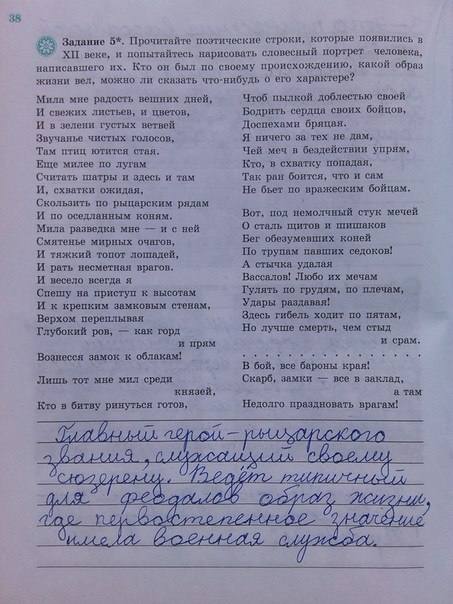 38
Задание 5*. Прочитайте поэтические строки, которые появились в
XII веке, и попытайтесь нарисовать словесный портрет человека,
написавшего их. Кто он был по своему происхождению, какой образ
жизни вел, можно ли сказать что-нибудь о его характере?
Мила мне радость вешних дней,
И свежих листьев, и цветов,
И в зелени густых ветвей
Звучанье чистых голосов,
Там птиц ютится стая.
Еще милее по лугам
Считать шатры и здесь и там
И, схватки ожидая,
Скользить по рыцарским рядам
И по оседланным коням.
Мила разведка мне — и с ней
Смятенье мирных очагов,
И тяжкий топот лошадей,
И рать несметная врагов.
И весело всегда я
Спешу на приступ к высотам
И к крепким замковым стенам,
Верхом переплывая
Глубокий ров, — как горд
и прям
Вознесся замок к облакам!
Лишь тот мне мил среди
князей,
Кто в битву ринуться готов,
Чтоб пылкой доблестью своей
Бодрить сердца своих бойцов,
Доспехами бряцая.
Я ничего за тех не дам,
Чей меч в бездействии упрям,
Кто, в схватку попадая,
Так ран боится, что и сам
Не бьет по вражеским бойцам.
Вот, под немолчный стук мечей
О сталь щитов и шишаков
Бег обезумевших коней
По трупам павших седоков!
А стычка удалая
Вассалов! Любо их мечам
Гулять по грудям, по плечам,
Удары раздавая!
Здесь гибель ходит по пятам,
Но лучше смерть, чем стыд
и срам.
. . . . . . . . . . . . . . . . . .
В бой, все бароны края!
Скарб, замки — все в заклад,
а там
Недолго праздновать врагам!
Главный герой - рыцарского
звания, служащий своему
сюзерену. Ведёт типичный
для феодалов образ жизни,
где первостепенное значение
имела военная служба.